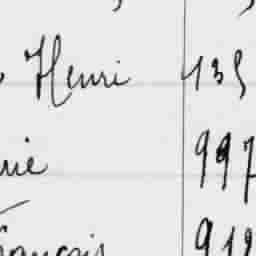 Henri 135
rie 997
François 919